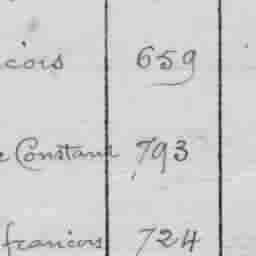 cois 659
e Constant 793
francois 724